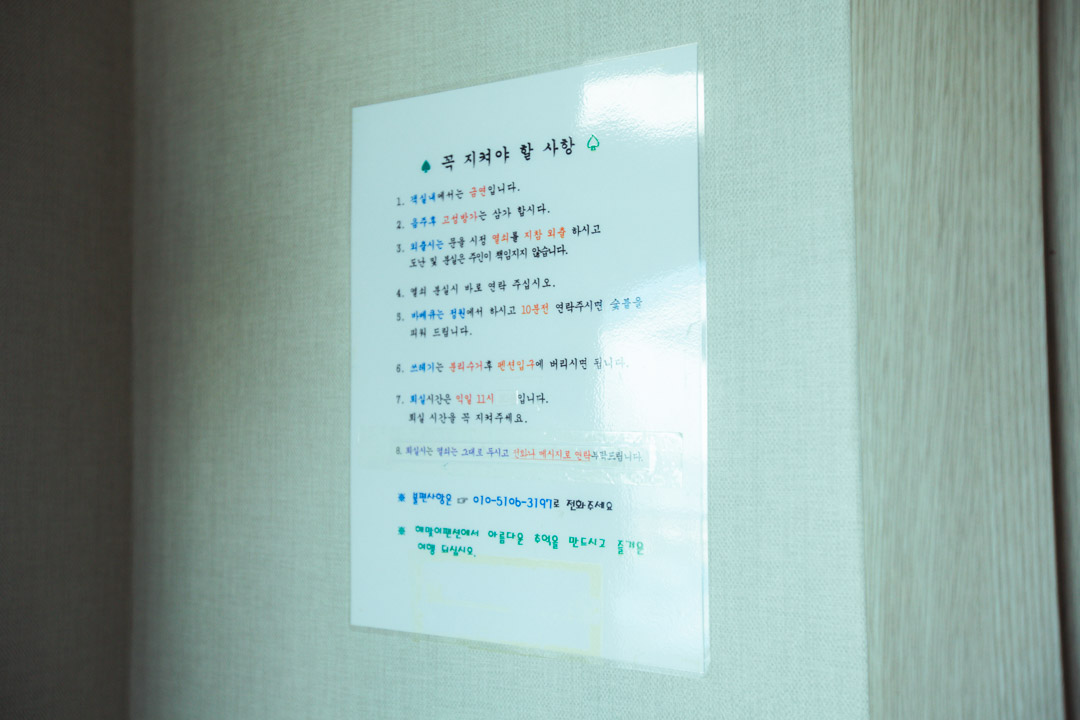 ♠ 꼭 지켜야 할 사항 ♤
1. 객실내에서는 금연입니다.
2. 음주후 고성방가는 삼가 합시다.
3. 외출시는 문을 시정 열쇠를 지참 외출 하시고
도난 및 분실은 주인이 책임지지 않습니다.
4. 열쇠 분실시 바로 연락 주십시오.
5. 바베큐는 정원에서 하시고 10분전 연락주시면 숯불을
피워 드립니다.
6. 쓰레기는 분리수거후 펜션입구에 버리시면 됩니다.
7. 퇴실시간은 익일 11시 입니다.
퇴실 시간을 꼭 지켜주세요.
8. 퇴실시는 열쇠는 그대로 두시고 전화나 메시지로 연락부탁드립니다.
※ 불편사항은 ☞ 010-5106-3197로 전화주세요
※ 해맞이펜션에서 아름다운 추억을 만드시고 즐거운
여행 되십시오.